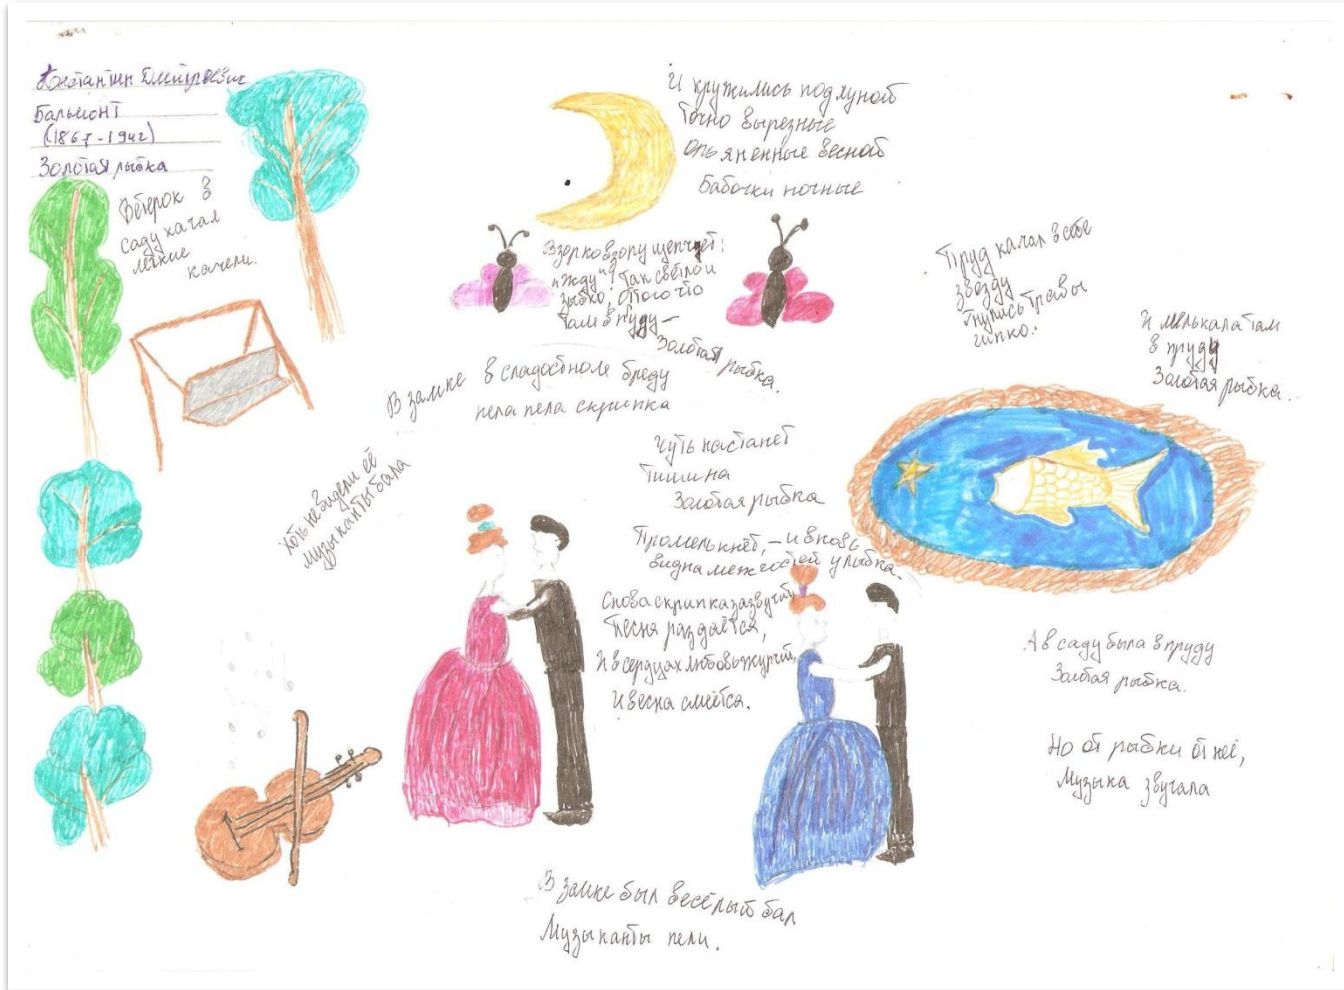 Константин Дмитриевич
Бальмонт
(1867-1942)
Золотая рыбка
Ветерок в
саду качал
лёгкие
качели.
И кружились под луной
Точно вырезные
опьяненные весной
Бабочки ночные
Взор ко взору шепчет:
"Жду"! Так светло и
зыбко; Отого что
там в пруду —
Золотая рыбка.
Пруд качал в себе
звезду
Гнулись травы
гипко.
И мелькала там
в пруду
Золотая рыбка..
В замке в сладостном бреду
пела пела скрипка
Хоть не видели её
музыканты бала
Чуть настанет
Тишина
Золотая рыбка
Промелькнёт, – и вновь
видна меж гостей улыбка.
Снова скрипка зазвучит,
Песня раздаётся,
И в сердцах любовь журчит,
И весна смеётся.
А в саду была в пруду
Золотая рыбка.
Но от рыбки от неё,
Музыка звучала
В замке был весёлый бал
Музыканты пели.